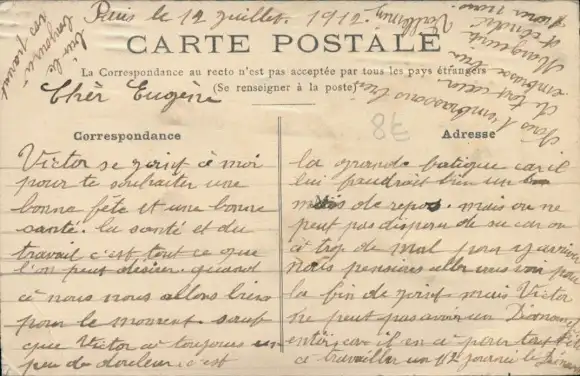 Paris le 12 Juillet 1912.
CARTE POSTALE
La Correspondance au recto n'est pas acceptée par tous les pays étrangers
(Se renseigner à la poste)
Cher Eugène
Correspondance
Victor se joint à moi
pour te souhaiter une
bonne fête et une bonne
santé. la santé et du
travail c'est tout ce que
l'on peut désirer. quand
à nous nous allons bien
pour le moment sauf
que Victor a toujours un
peu de douleur, c'est
Adresse
la grande fatigue car il
lui faudrait bien un
mois de repos. mais on ne
peut pas disposer de su car on
a trop de mal pour y arriver
nous pensions aller vous voir pour
la fin de juif mais Victor
ne peut pas avoir un Dimanche
entier car il en a pour tout
à travailler un 1/2 journée le
Nous t'embrassons
de tout cœur
embrasse bien
Marguerite
et André
pour nous.
bien le
bonjour à
tes parents
8€